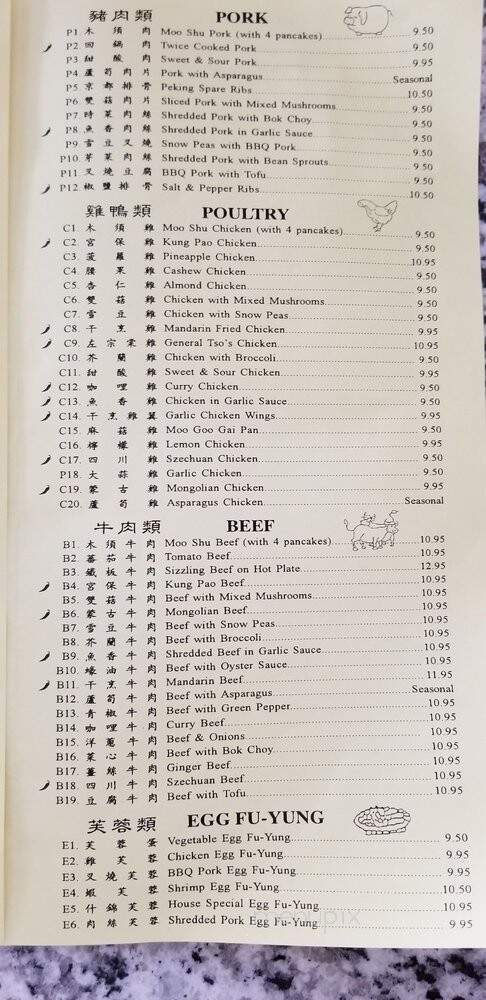 豬肉類 PORK
P1. 木須肉 Moo Shu Pork (with 4 pancakes) 9.50
P2. 回鍋肉 Twice Cooked Pork 9.50
P3. 甜酸肉 Sweet & Sour Pork 9.95
P4. 蘆筍肉片 Pork with Asparagus Seasonal
P5. 京都排骨 Peking Spare Ribs 10.50
P6. 雙菇肉片 Sliced Pork with Mixed Mushrooms 9.50
P7. 時菜肉絲 Shredded Pork with Bok Choy 9.50
P8. 魚香肉絲 Shredded Pork in Garlic Sauce 9.50
P9. 雪豆叉燒 Snow Peas with BBQ Pork 9.50
P10. 芽菜肉絲 Shredded Pork with Bean Sprouts 9.50
P11. 叉燒豆腐 BBQ Pork with Tofu 9.50
P12. 椒鹽排骨 Salt & Pepper Ribs 10.50
雞鴨類 POULTRY
C1. 木須雞 Moo Shu Chicken (with 4 pancakes) 9.50
C2. 宮保雞 Kung Pao Chicken 9.50
C3. 菠蘿雞 Pineapple Chicken 10.95
C4. 腰果雞 Cashew Chicken 9.50
C5. 杏仁雞 Almond Chicken 9.50
C6. 雙菇雞 Chicken with Mixed Mushrooms 9.50
C7. 雪豆雞 Chicken with Snow Peas 9.50
C8. 干烹雞 Mandarin Fried Chicken 9.95
C9. 左宗棠雞 General Tso's Chicken 10.95
C10. 芥蘭雞 Chicken with Broccoli 9.50
C11. 甜酸雞 Sweet & Sour Chicken 9.95
C12. 咖哩雞 Curry Chicken 9.50
C13. 魚香雞 Chicken in Garlic Sauce 9.50
C14. 干烹雞翼 Garlic Chicken Wings 9.95
C15. 麻菇雞 Moo Goo Gai Pan 9.50
C16. 檸檬雞 Lemon Chicken 9.95
C17. 四川雞 Szechuan Chicken 9.50
P18. 大蒜雞 Garlic Chicken 9.50
C19. 蒙古雞 Mongolian Chicken 9.95
C20. 蘆筍雞 Asparagus Chicken Seasonal
牛肉類 BEEF
B1. 木須牛肉 Moo Shu Beef (with 4 pancakes) 10.95
B2. 蕃茄牛肉 Tomato Beef 10.95
B3. 鐵板牛肉 Sizzling Beef on Hot Plate 12.95
B4. 宮保牛肉 Kung Pao Beef 10.95
B5. 雙菇牛肉 Beef with Mixed Mushrooms 10.95
B6. 蒙古牛肉 Mongolian Beef 10.95
B7. 雪豆牛肉 Beef with Snow Peas 10.95
B8. 芥蘭牛肉 Beef with Broccoli 10.95
B9. 魚香牛肉 Shredded Beef in Garlic Sauce 10.95
B10. 蠔油牛肉 Beef with Oyster Sauce 10.95
B11. 干烹牛肉 Mandarin Beef 11.95
B12. 蘆筍牛肉 Beef with Asparagus Seasonal
B13. 青椒牛肉 Beef with Green Pepper 10.95
B14. 咖哩牛肉 Curry Beef 10.95
B15. 洋蔥牛肉 Beef & Onions 10.95
B16. 菜心牛肉 Beef with Bok Choy 10.95
B17. 薑絲牛肉 Ginger Beef 10.95
B18. 四川牛肉 Szechuan Beef 10.95
B19. 豆腐牛肉 Beef with Tofu 10.95
芙蓉類 EGG FU-YUNG
E1. 芙蓉蛋 Vegetable Egg Fu-Yung 9.50
E2. 雞芙蓉 Chicken Egg Fu-Yung 9.95
E3. 叉燒芙蓉 BBQ Pork Egg Fu-Yung 9.95
E4. 蝦芙蓉 Shrimp Egg Fu-Yung 10.50
E5. 什錦芙蓉 House Special Egg Fu-Yung 10.95
E6. 肉絲芙蓉 Shredded Pork Egg Fu-Yung 9.95